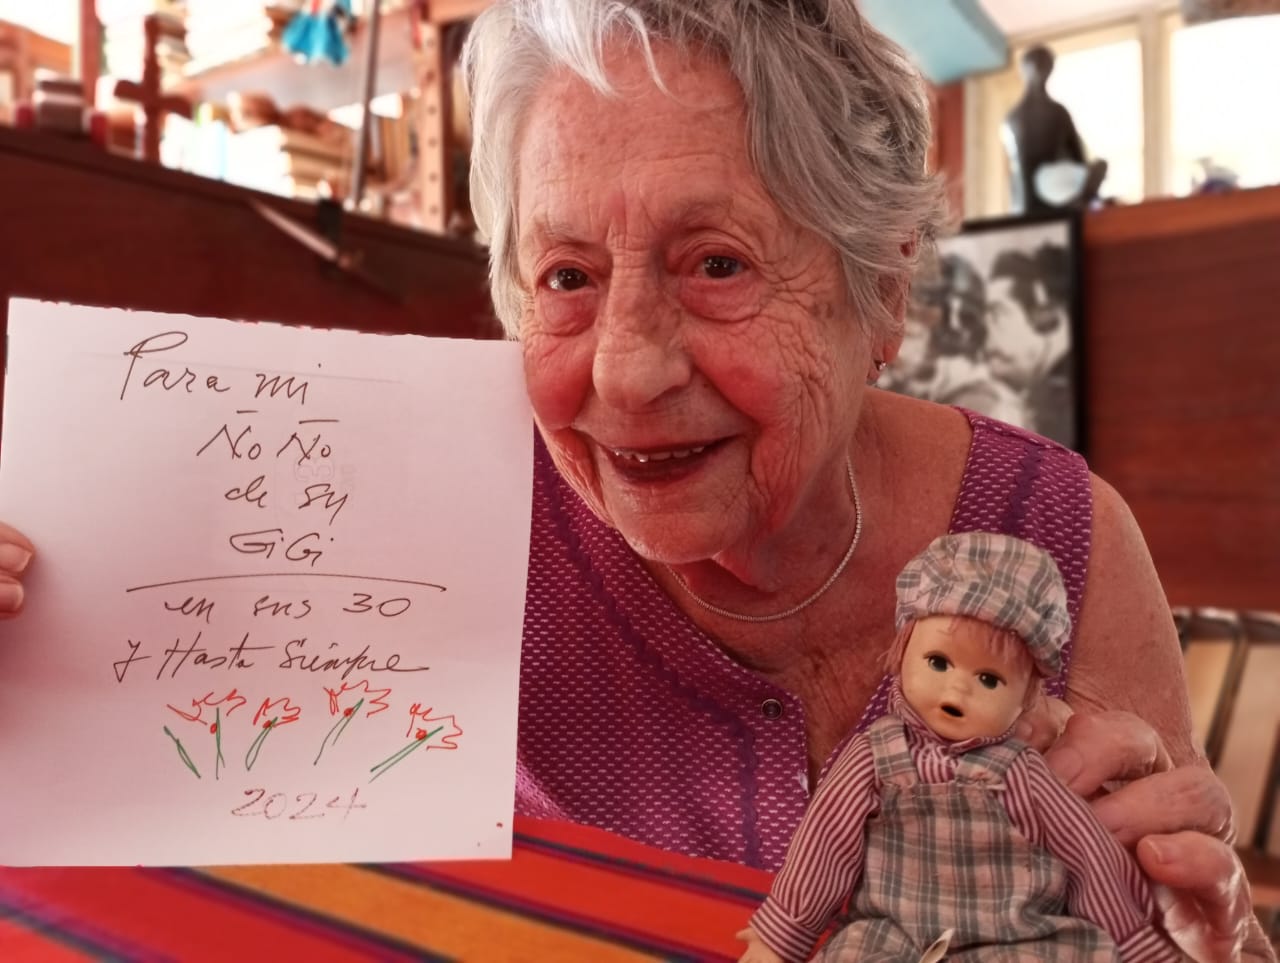 Para mi
Ño Ño
de su
GiGi
en sus 30
y Hasta Siempre
2024